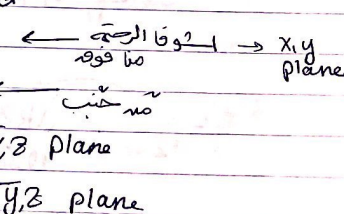 ← اشوفا الرجبة → x,y plane
منا فوقه
← من جنب
,z plane
y,z plane